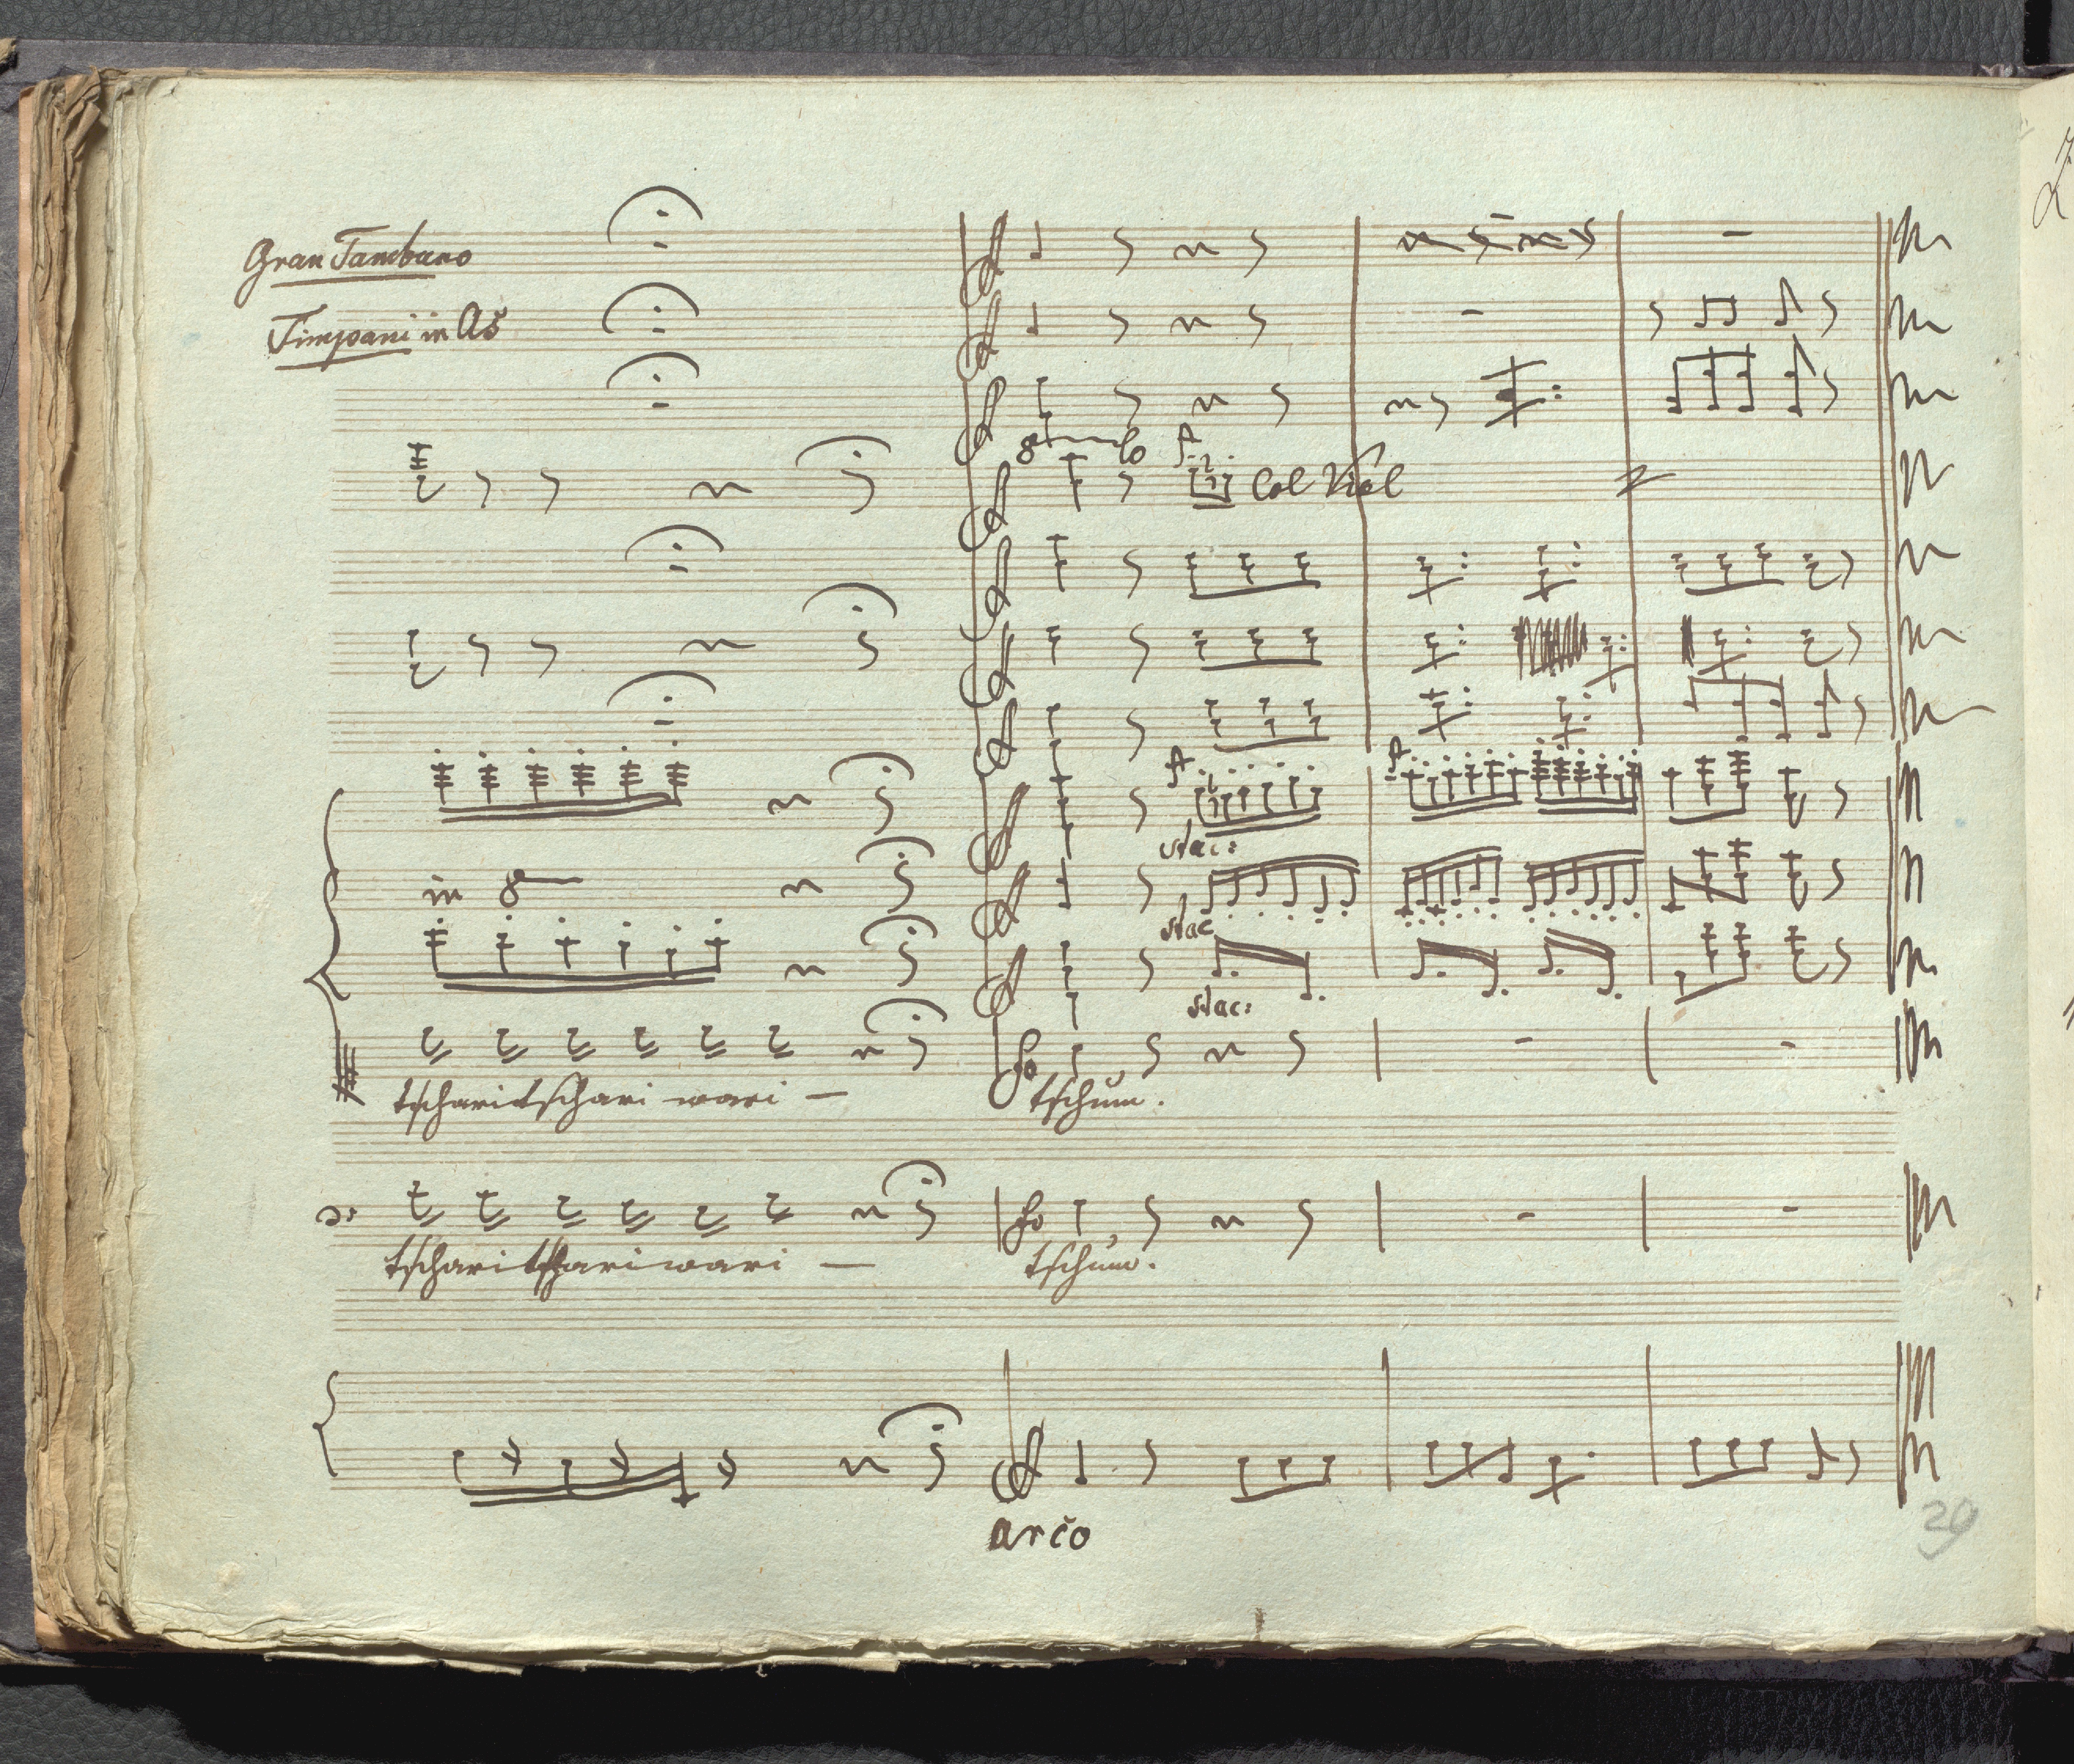 Gran Tamburo
Timpani in As
8va lo
Col Viol
stac:
in 8va
stac
stac:
tscharitschari wari —
tschum.
tscharitschariwari —
tschum.
arco
39